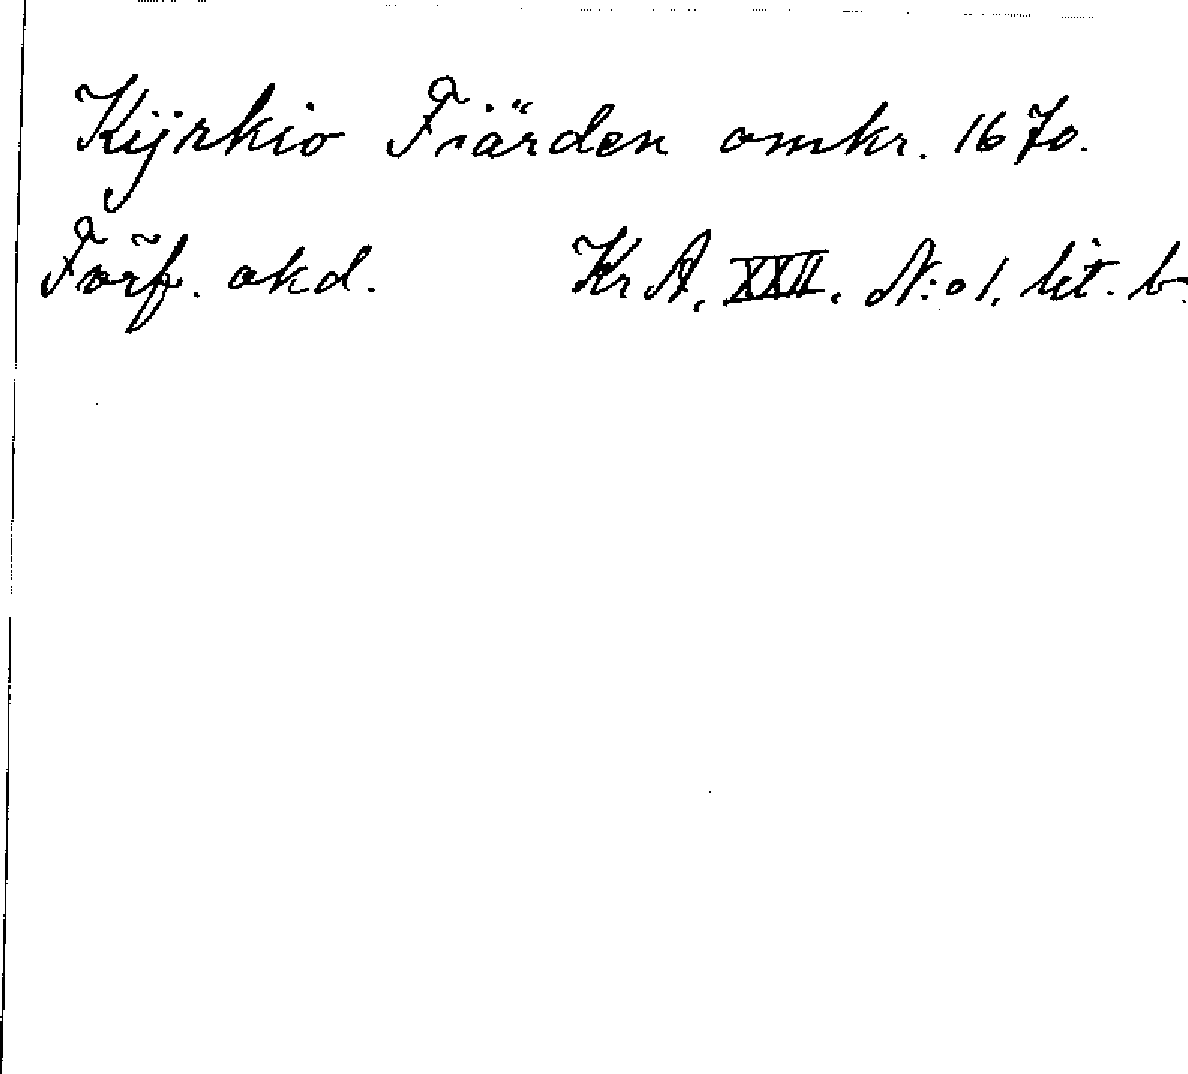 Kijrkio Fiärden omkr. 1670.
Förf. okd. Kr A, XXII. N:o 1. lit. b.